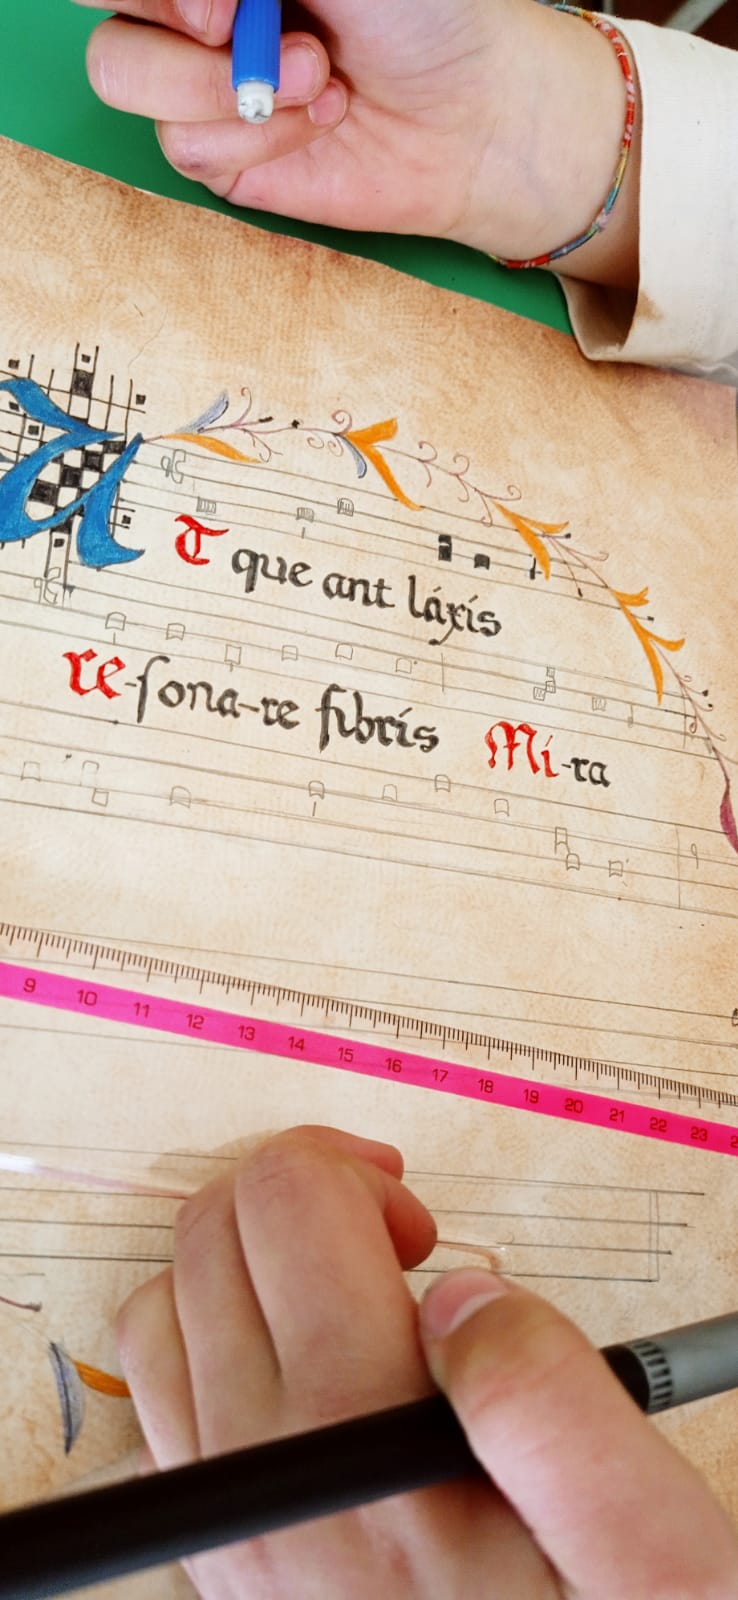 UT que ant láxis
re-sona-re fibris Mi-ra
9 10 11 12 13 14 15 16 17 18 19 20 21 22 23